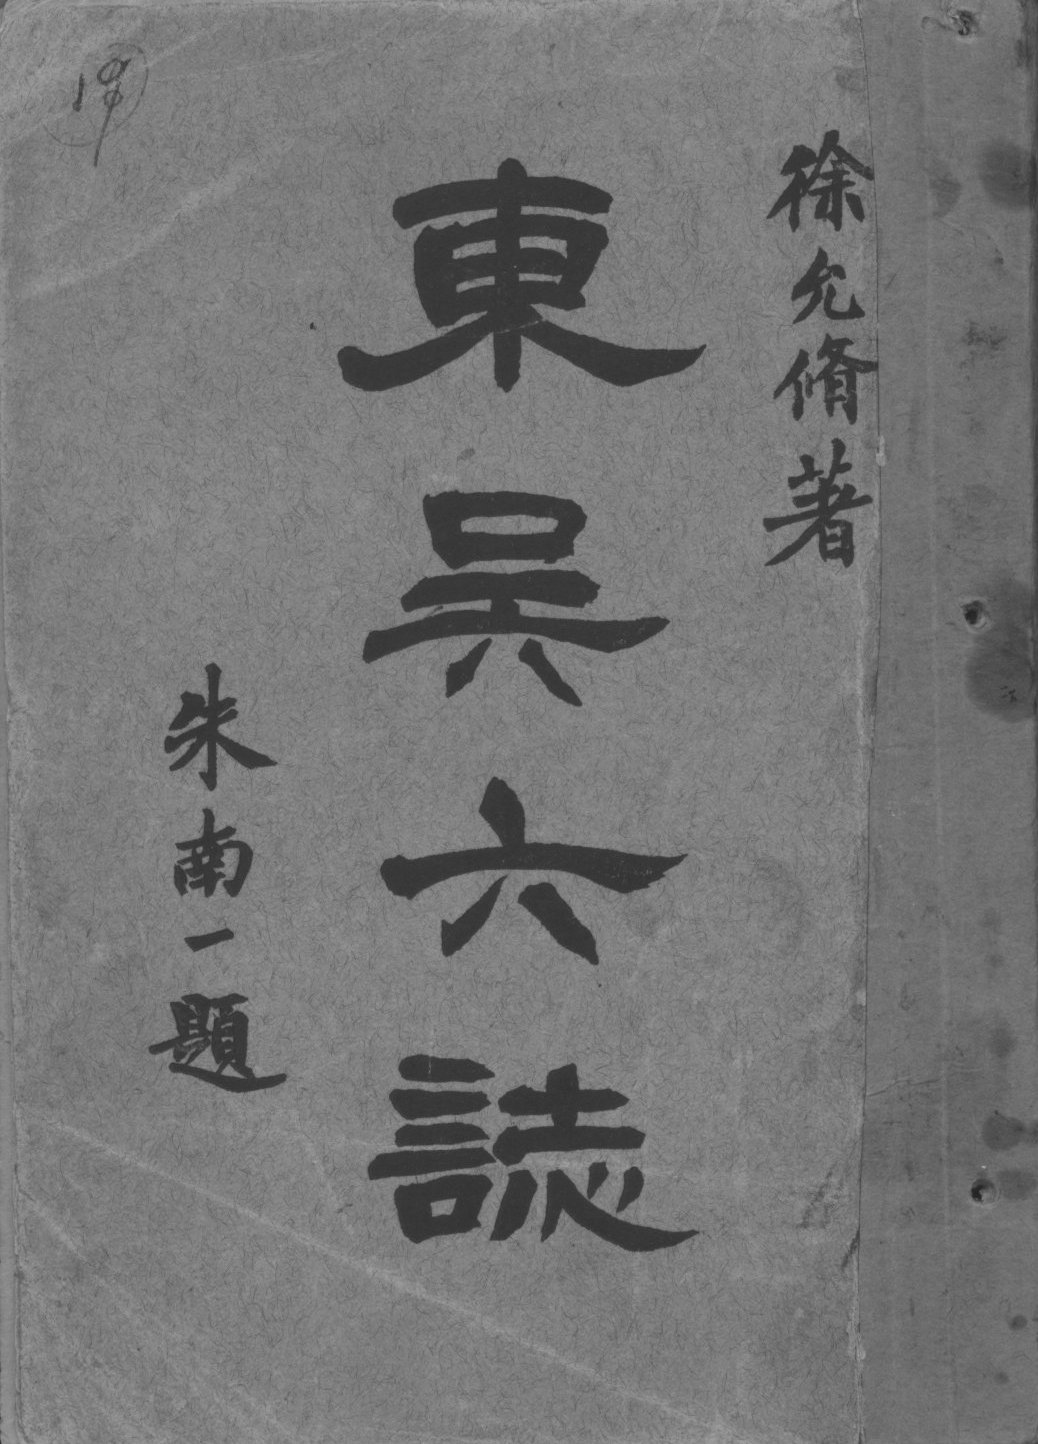 徐允脩著
東吳六誌
朱南一題